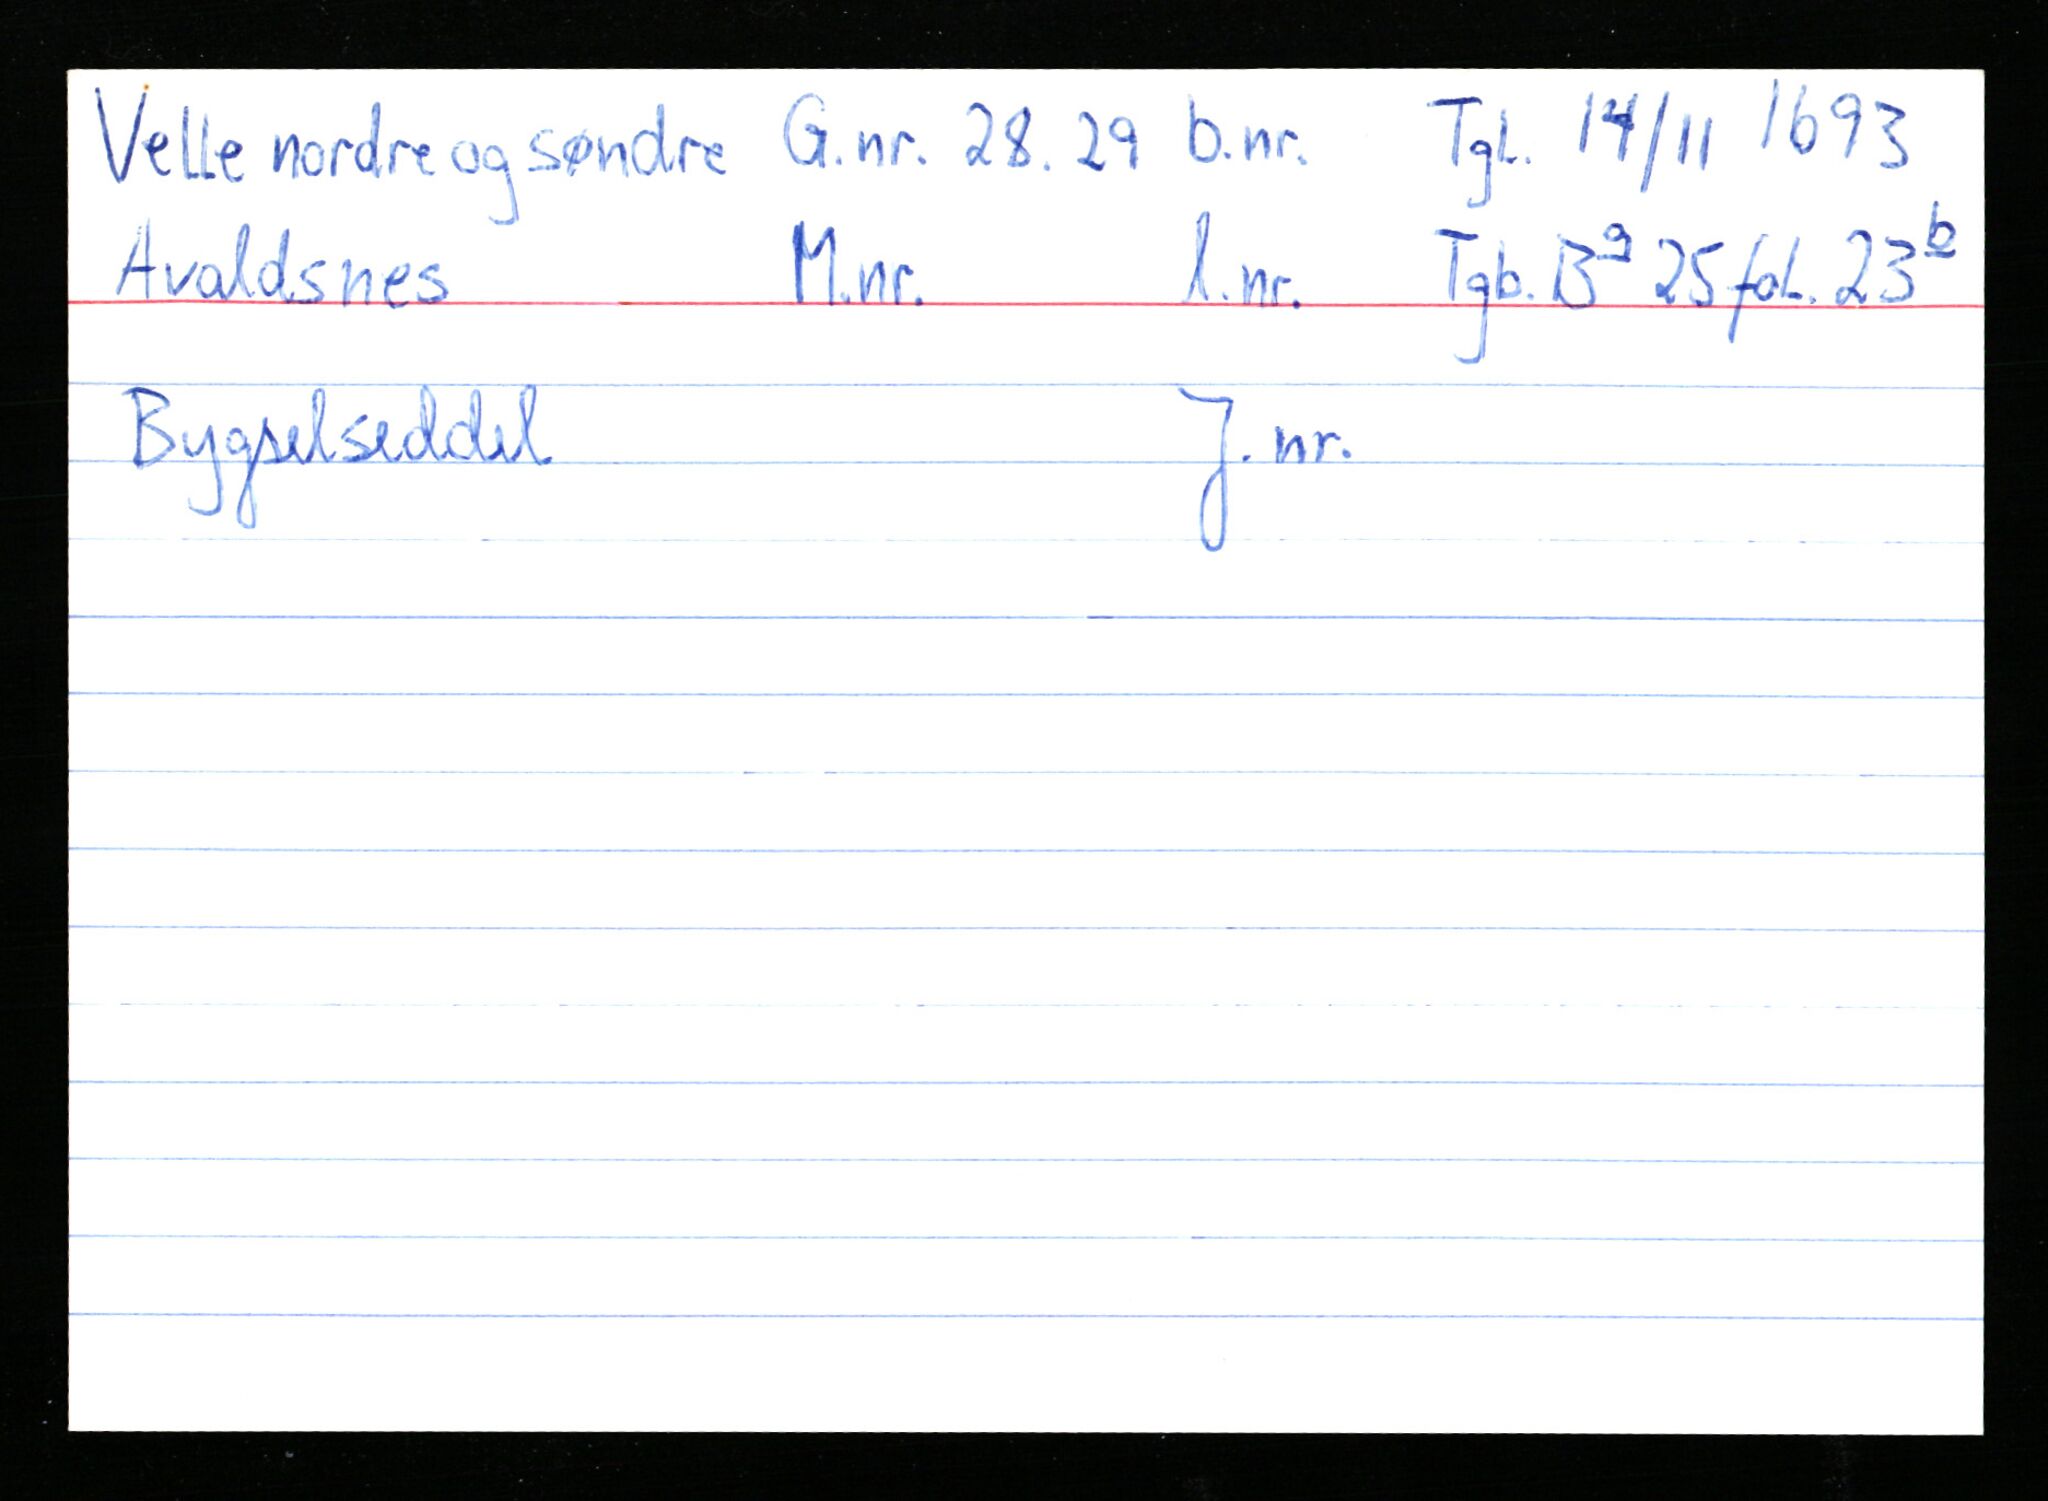 Velle nordre og søndre G.nr. 28. 29 b.nr. Tgl. 14/11 1693
Avaldsnes M.nr. l.nr. Tgb. Bª 25 fol. 23ᵇ
Bygselseddel J. nr.